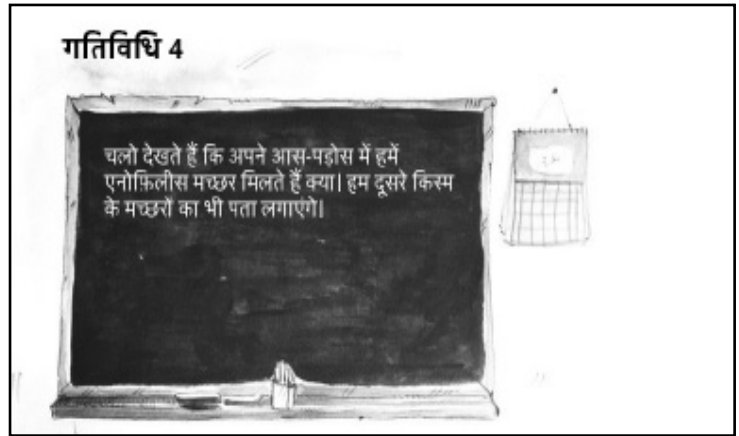 गतिविधि 4
चलो देखते हैं कि अपने आस-पड़ोस में हमें
एनोफ़िलीस मच्छर मिलते हैं क्या। हम दूसरे किस्म
के मच्छरों का भी पता लगाएंगे।